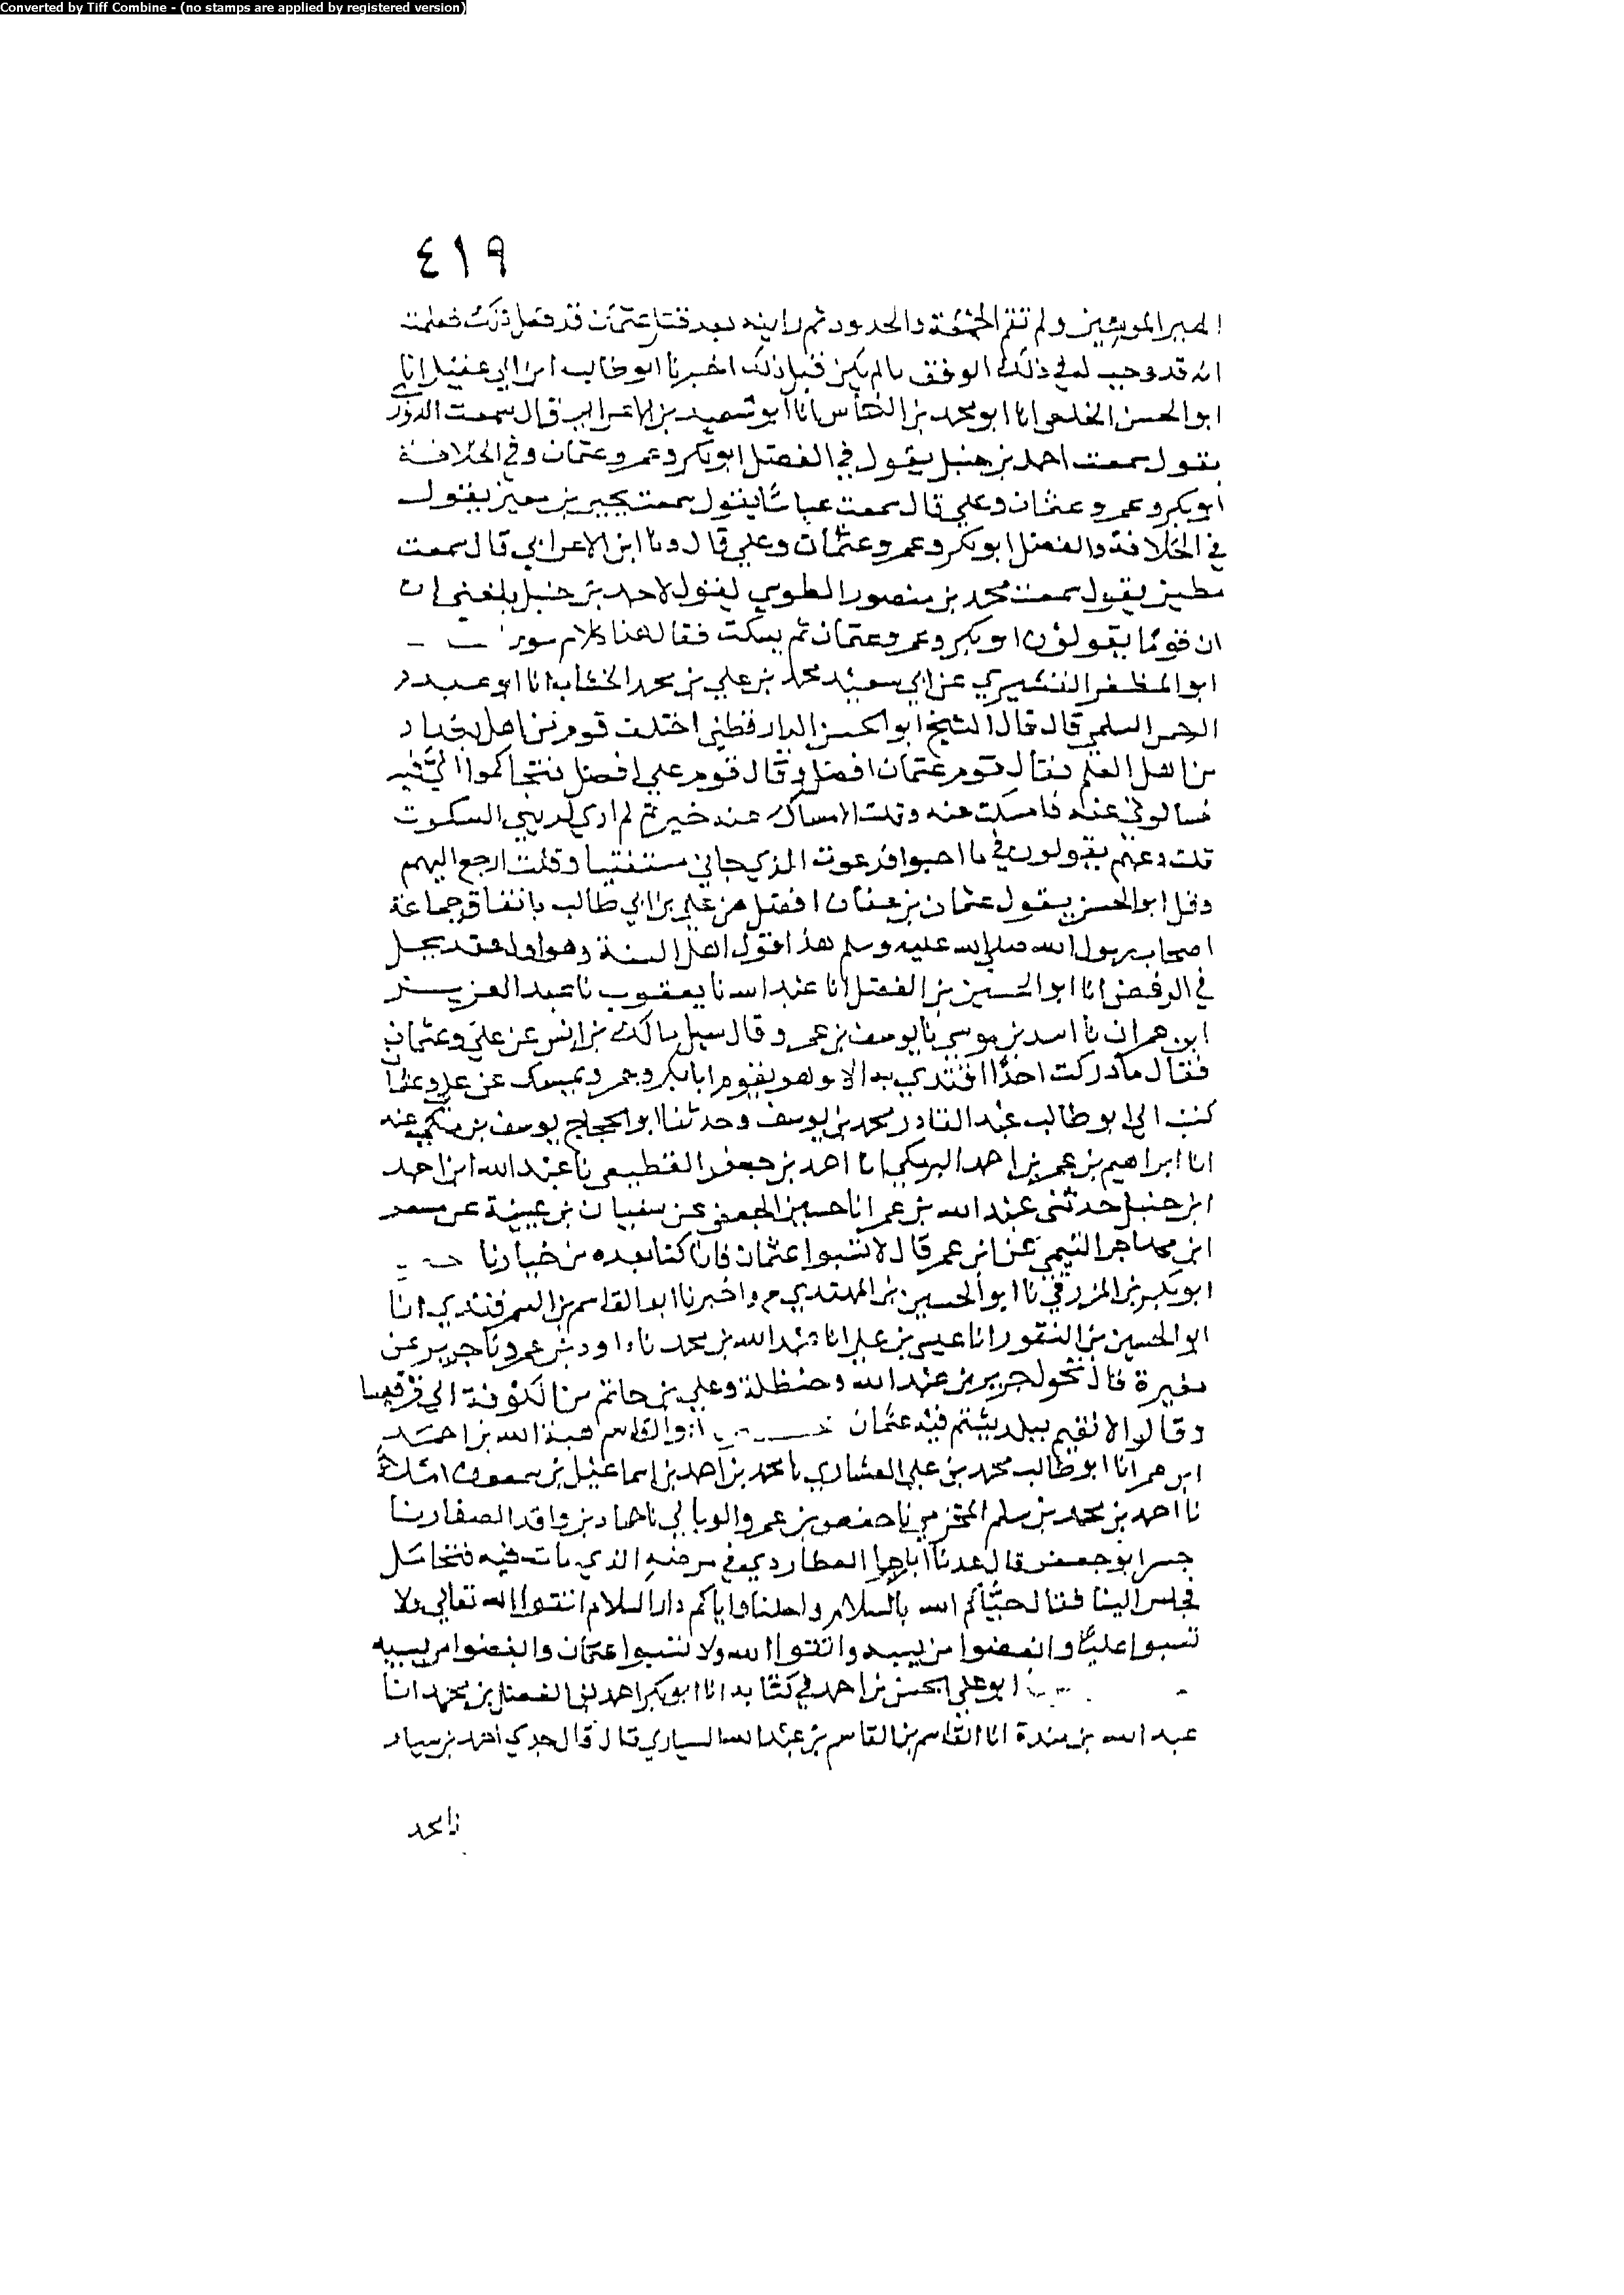 Converted by Tiff Combine - (no stamps are applied by registered version)
٤١٩
امير المومنين ولم تقم الجمعة والحدود ثم رايته بعد قتل عثمان قد فعل ذلك فعلمت
انه قد وجب له في ذلك الوقت ما لم يكن قبل ذلك اخبرنا ابو طالب ابن ابي عقيل انا
ابو الحسن الخلعي انا ابو محمد بن النحاس انا ابو سعيد بن الاعرابي قال سمعت الدوري
يقول سمعت احمد بن حنبل يقول في الفضل ابو بكر وعمر وعثمان وفي الخلافة
ابو بكر وعمر وعثمان وعلي قال سمعت عباسا يقول سمعت يحيى بن معين يقول
في الخلافة والفضل ابو بكر وعمر وعثمان وعلي قال ونا ابن الاعرابي قال سمعت
مطين يقول سمعت محمد بن منصور الطوسي يقول لاحمد بن حنبل بلغني ان
ان قوما يقولون ابو بكر وعمر وعثمان ثم يسكت فقال هذا كلام سوء
ابو المظفر القشيري عن ابي سعيد محمد بن علي بن محمد الخشاب انا ابو عبد
الرحمن السلمي قال قال الشيخ ابو الحسن الدارقطني اختلف قوم من اهل بغداد
من اهل العلم فقال قوم عثمان افضل وقال قوم علي افضل فتحاكموا الي فيه
فسالوني عنه فامسكت عنه وقلت الامساك عنه خير ثم لم ار لديني السكوت
قلت دعهم يقولون في ما احبوا فدعوت الذي جاني مستفتيا وقلت ارجع اليهم
وقل ابو الحسن يقول عثمان بن عفان افضل من علي بن ابي طالب باتفاق جماعة
اصحاب رسول الله صلى الله عليه وسلم هذا قول اهل السنة وهو اول عقد يحل
في الرفض انا ابو الحسين بن الفضل انا عبد الله نا يعقوب نا عبد العزيز
ابن عمران نا اسد بن موسى نا يوسف بن عمر وقال سيل مالك بن انس عن علي وعثمان
فقال ما ادركت احدا اقتدي به الا وهو يقدم ابا بكر وعمر ويمسك عن علي وعثمان
كتب الي ابو طالب عبد القادر بن محمد بن يوسف وحدثنا ابو الحجاج يوسف بن مكي عنه
انا ابراهيم بن عمر بن احمد البرمكي انا احمد بن جعفر القطيعي نا عبد الله ابن احمد
ابن حنبل حدثني عبد الله بن عمر انا حسين الجعفي عن سفيان بن عيينة عن مسعر
ابن مهاجر التيمي عن ابن عمر قال لا تسبوا عثمان فانا كنا نعده من خيارنا
ابو بكر بن المزرفي نا ابو الحسين بن المهتدي ح واخبرنا ابو القاسم بن السمرقندي انا
ابو الحسين بن النقور انا عيسى بن علي انا عبد الله بن محمد نا داود بن عمرو نا جرير عن
مغيرة قال تحول جرير بن عبد الله وحنظلة وعدي بن حاتم من الكوفة الى قرقيسا
وقالوا لا نقيم ببلد يشتم فيه عثمان ابو القاسم هبة الله بن احمد
ابن عمر انا ابو طالب محمد بن علي العشاري نا محمد بن احمد بن اسماعيل بن سمعون املاء
نا احمد بن محمد بن سلم المخرمي نا حفص بن عمرو الربالي نا حماد بن واقد الصفار نا
جسر ابو جعفر قال عدنا ابا رجا العطاردي في مرضه الذي مات فيه فتحامل
فجلس الينا فقال حياكم الله بالسلام واحلنا واياكم دار السلام اتقوا الله تعالى ولا
تسبوا عليا وابغضوا من يسبه واتقوا الله ولا تسبوا عثمان وابغضوا من يسبه
ابو علي الحسن بن احمد في كتابه انا ابو بكر احمد بن الفضل بن محمد انا
عبد الله بن مندة انا القاسم بن القاسم بن عبد الله السياري قال قال جدي احمد بن سيار
نا محمد